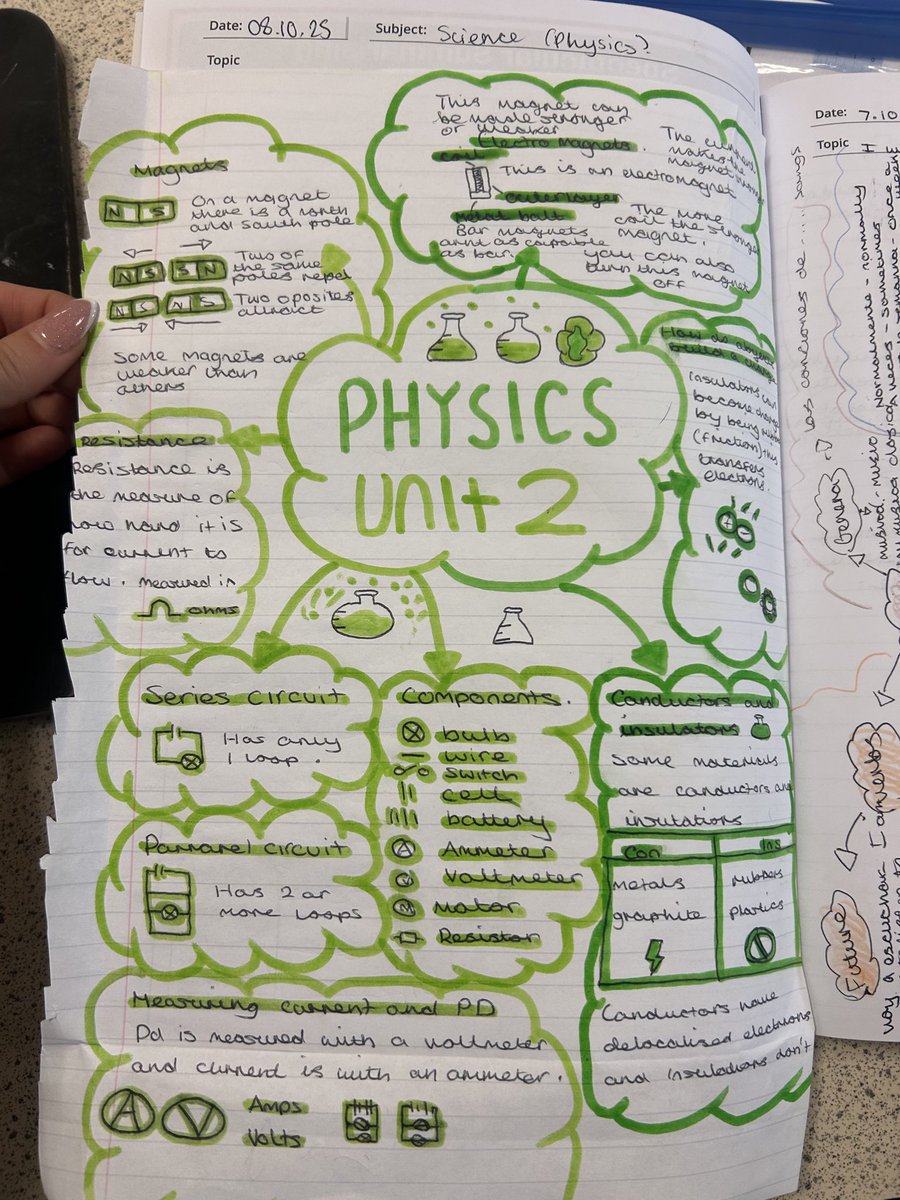 Date: 08.10.25
Subject: Science (Physics)
Topic
This magnet can
be made stronger
or weaker
Electro Magnets.
coil
This is an electromagnet
outerlayer
metal bolt
Bar magnets
arnt as capable
as
The current
makes the
magnet
The more
coil the stronge
magnet.
you can also
turn this magnet
off
Magnets
N S
On a magnet
there is a north
and south pole
N S S N
Two of
the same
poles repel
N S N S
Two oposites
attract
Some magnets are
weaker than
others
PHYSICS
Unit 2
How do objects
build a charge
insulators can
become
by being
(friction) this
transfers
electrons.
+
-
resistance
Resistance is
the measure of
how hard it is
for current to
flow. measured in
ohms
Series circuit
Has only
1 loop.
Pararel circuit
Has 2 or
more loops
Components.
bulb
wire
switch
cell
battery
A Ammeter
V Voltmeter
M Motor
Resistor
Conductors and
insulators
Some materials
are conductors and
insulations
Con
Ins
metals
graphite
rubbers
plastics
Conductors have
delocalised electrons
and insulations don't
Measuring current and PD
Pd is measured with a voltmeter
and current is with an ammeter.
A V
Amps
Volts
Date: 7.10
Topic
los canciones de
songs
normalmente - normally
a veces - sometimes
música clásica
Genera
Future
voy a escuchar